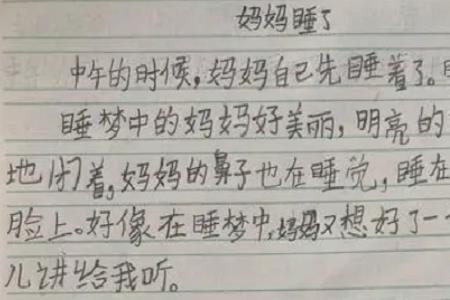 妈妈睡了
中午的时候,妈妈自己先睡着了。
睡梦中的妈妈好美丽,明亮的
地闭着,妈妈的鼻子也在睡觉,睡在
脸上。好像在睡梦中,妈妈又想好了一
儿讲给我听。